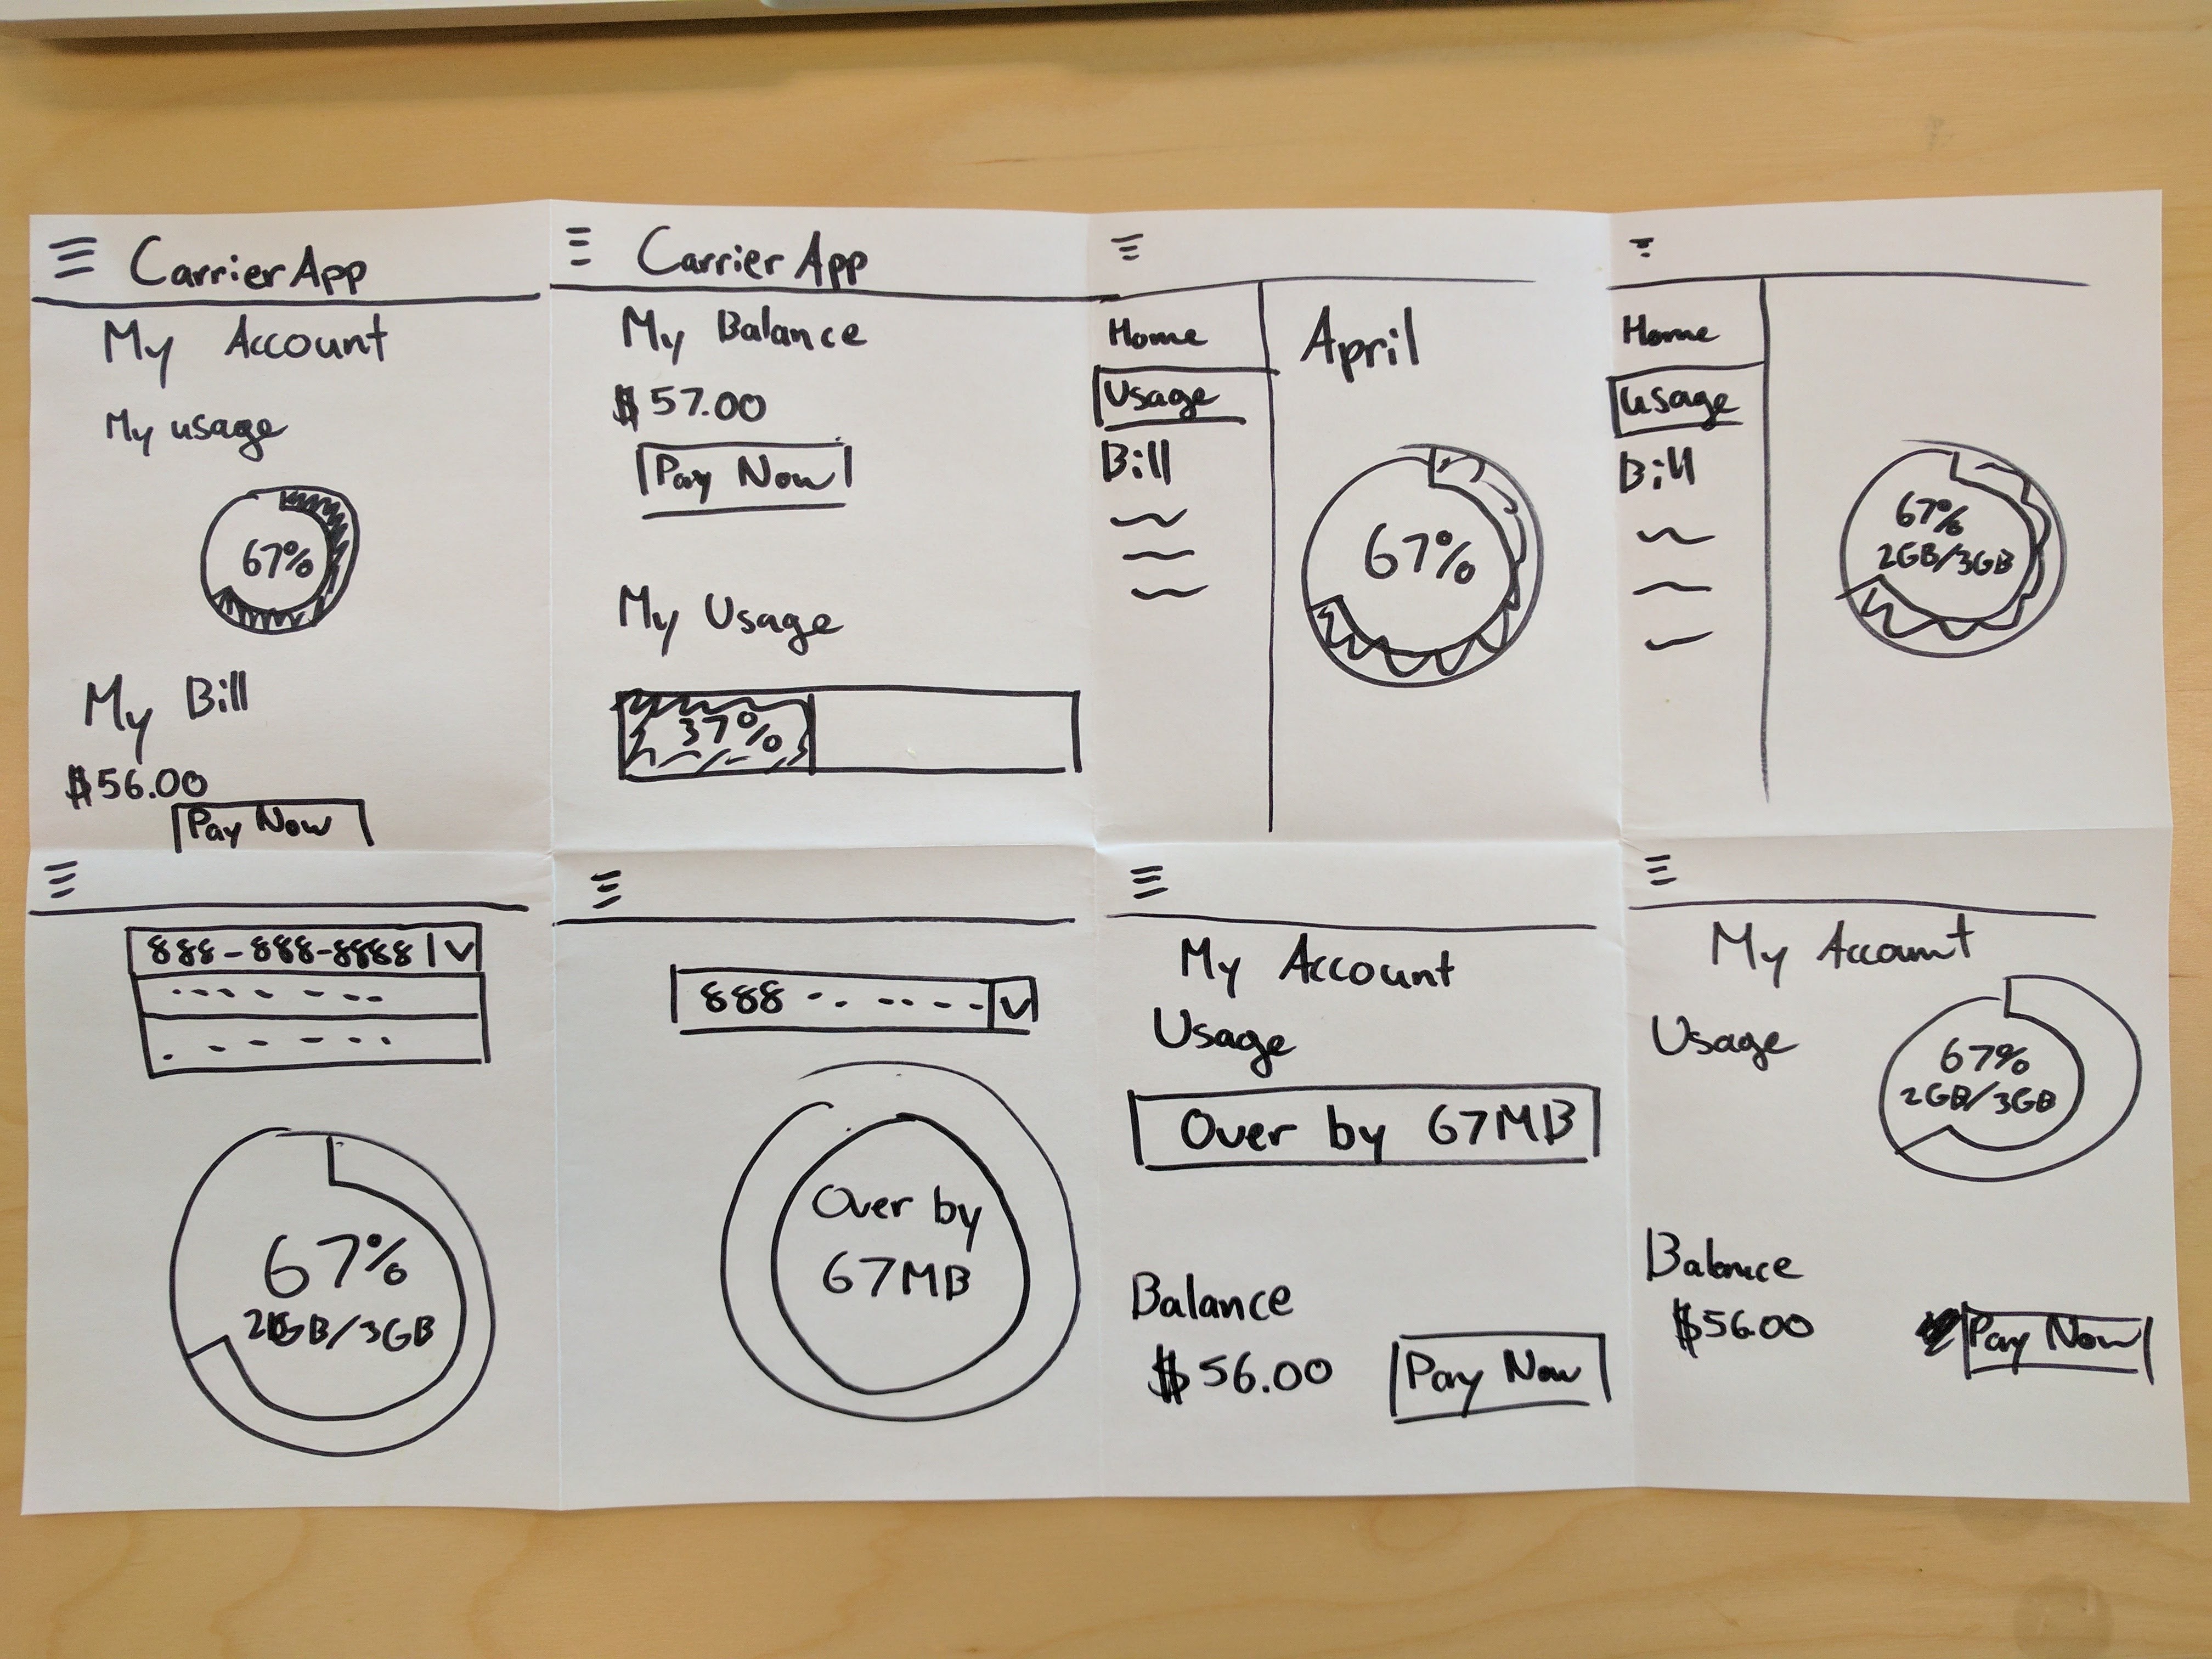 CarrierApp
My Account
My usage
67%
My Bill
$56.00
Pay Now
Carrier App
My Balance
$57.00
Pay Now
My Usage
37%
Home
Usage
Bill
April
67%
Home
Usage
Bill
67%
2GB/3GB
888-888-8888
67%
2GB/3GB
888
Over by
67MB
My Account
Usage
Over by 67MB
Balance
$56.00 Pay Now
My Account
Usage
67%
2GB/3GB
Balance
$56.00 Pay Now